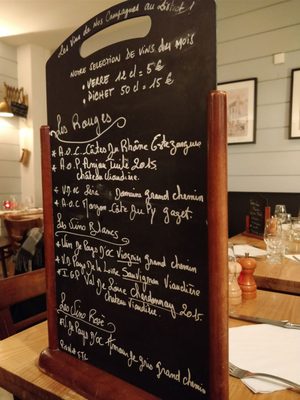 Les Vins de Nos Campagnes au
Notre Selection de Vins des Mois
• VERRE 12 cl = 5 €
• PICHET 50 cl = 15 €
Les Rouges
* A.O.C. Côtes Du Rhône
* A.O.P. Anjou 2015
Château Viaudière
* V.D.C Domaine grand chemin
* A.O.C Côte du Py gazet
Les Vins Blancs
* Vin de Pays D'oc Viognier grand chemin
* V.D Pays De la Loire Sauvignon Viaudière
* I.G.P Val de Loire Chardonnay 2015
Château Viaudière
Les Vins Rosés
Vd Pays D'oc gris grand chemin